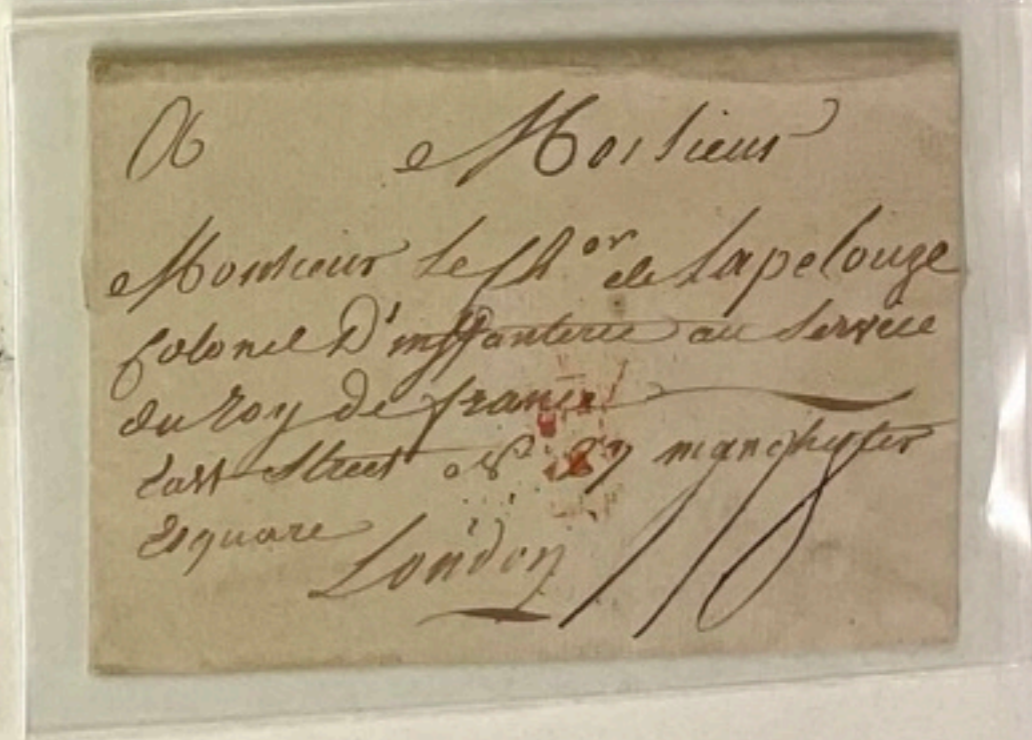 A Monsieur
Monsieur Le Ch.er de Lapelouze
Colonel D'inffanterie au Service
du Roy de france
East Street N.o 27 manchester
Esquare
London